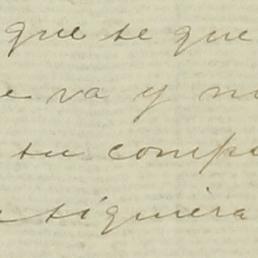 que se que
va y
su comp
siquiera